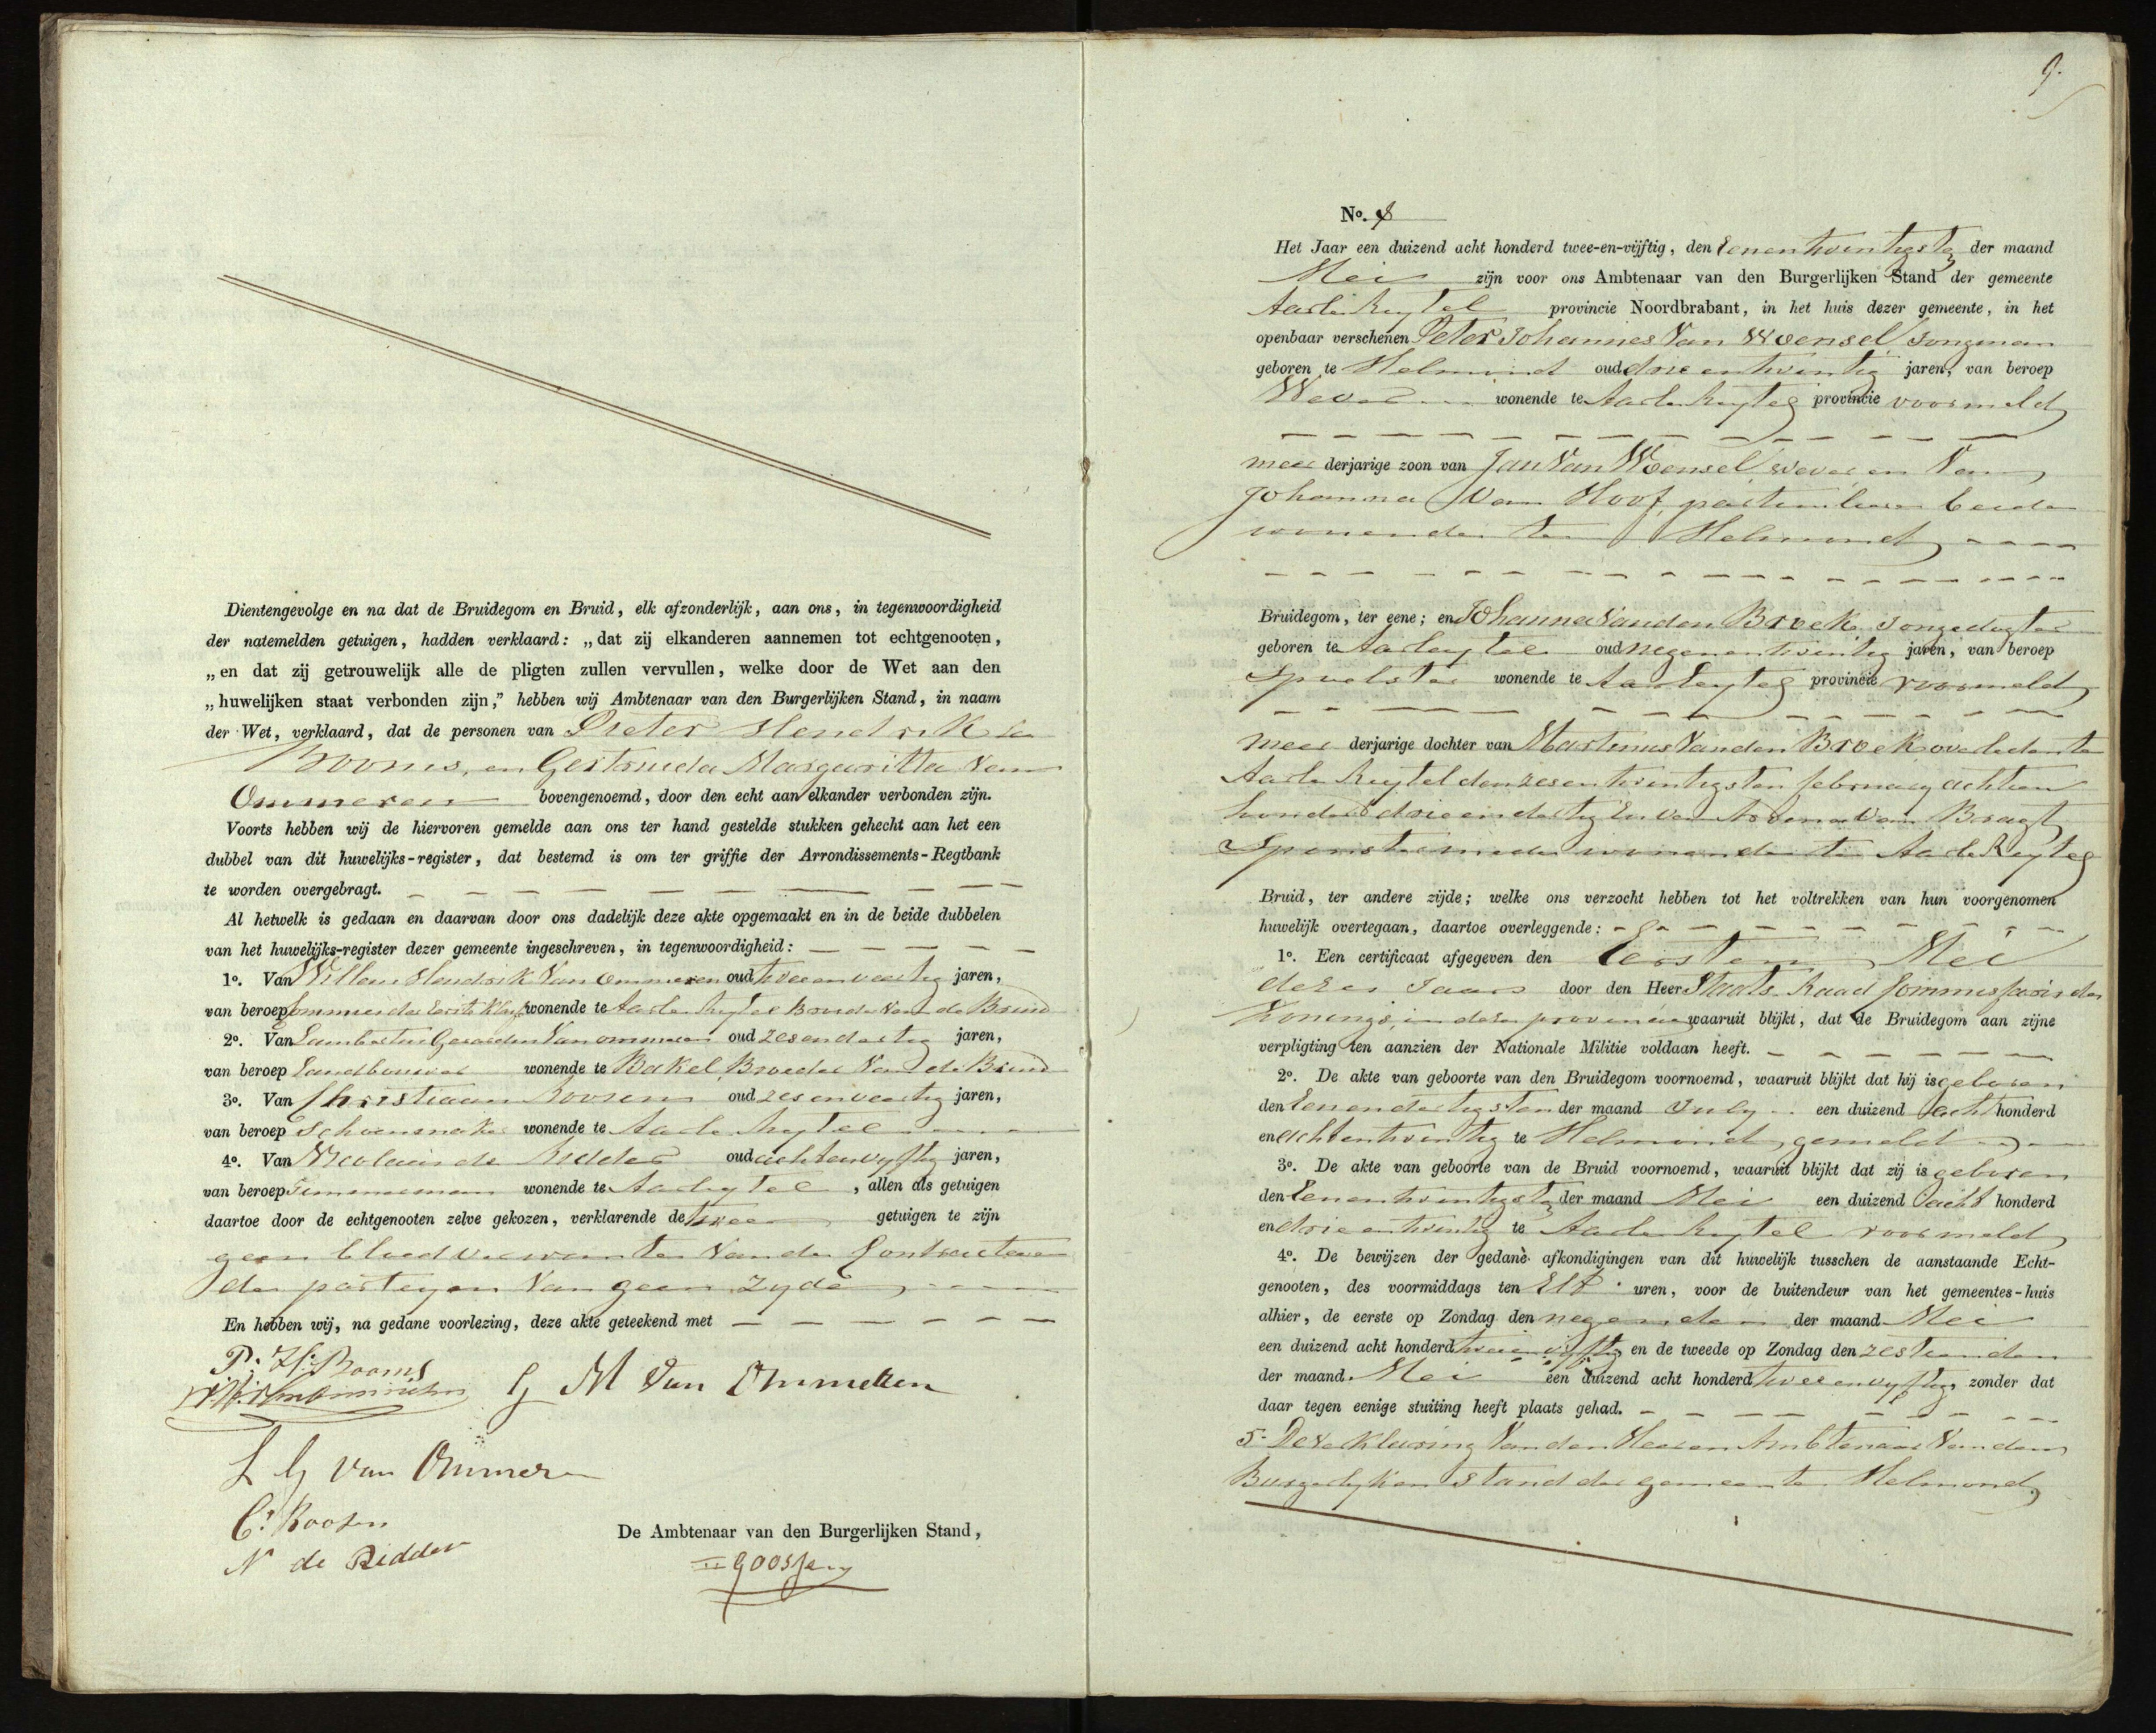 Dientengevolge en na dat de Bruidegom en Bruid, elk afzonderlijk, aan ons, in tegenwoordigheid
der natemelden getuigen, hadden verklaard: „dat zij elkanderen aannemen tot echtgenooten,
„en dat zij getrouwelijk alle de pligten zullen vervullen, welke door de Wet aan den
„huwelijken staat verbonden zijn," hebben wij Ambtenaar van den Burgerlijken Stand, in naam
der Wet, verklaard, dat de personen van Pieter Hendrik
Booms, en Gertrueda Margaritta Van
Ommeren bovengenoemd, door den echt aan elkander verbonden zijn.
Voorts hebben wij de hiervoren gemelde aan ons ter hand gestelde stukken gehecht aan het een
dubbel van dit huwelijks-register, dat bestemd is om ter griffie der Arrondissements-Regtbank
te worden overgebragt.
Al hetwelk is gedaan en daarvan door ons dadelijk deze akte opgemaakt en in de beide dubbelen
van het huwelijks-register dezer gemeente ingeschreven, in tegenwoordigheid:
1o. Van Willem Hendrik Van Ommeren oud twee en veertig jaren,
van beroep Commies der Eerste Klasse wonende te Aarle Rixtel Broeder Van de Bruid
2o. Van Lambertus Gerardus Van ommeren oud zesendertig jaren,
van beroep Landbouwer wonende te Bakel, Broeder Van de Bruid
3o. Van Christiaan Roosen oud zesenveertig jaren,
van beroep Schoenmaker wonende te Aarle Rixtel
4o. Van Nicolaas de Ridder oud achtenvyftig jaren,
van beroep Timmerman wonende te Aarlrixtel, allen als getuigen
daartoe door de echtgenooten zelve gekozen, verklarende de twee getuigen te zijn
geen bloedverwanten Van de Contracteren
de partyen Van geen zyde
En hebben wij, na gedane voorlezing, deze akte geteekend met
P: H: Booms
G M Van Ommeren
L G Van Ommeren
C: Roosen
N de Ridder
De Ambtenaar van den Burgerlijken Stand,
Goossens
9.
No. 8
Het Jaar een duizend acht honderd twee-en-vijftig, den Eenentwintigsten der maand
Mei zijn voor ons Ambtenaar van den Burgerlijken Stand der gemeente
Aarle Rixtel provincie Noordbrabant, in het huis dezer gemeente, in het
openbaar verschenen Peter Johannes Van Woensel Jongman
geboren te Helmond oud drie entwintig jaren, van beroep
Wever wonende te Aarle Rixtel provincie voormeld
meerderjarige zoon van Jan Van Woensel wever en Van
Johanna Van Hoof, particuliere beide
wonende te Helmond
Bruidegom, ter eene; en Johanna Vanden Broek Jongedogter
geboren te Aarlerixtel oud negenentwintig jaren, van beroep
Spoelster wonende te Aarlerixtel provincie voormeld
meerderjarige dochter van Martinus Vanden Broek overleden te
Aarle Rixtel den zesentwintigsten february achtien
honderd drieendertig En van Van Bragt
Spinster mede wonende te Aarle Rixtel
Bruid, ter andere zijde; welke ons verzocht hebben tot het voltrekken van hun voorgenomen
huwelijk overtegaan, daartoe overleggende:
1o. Een certificaat afgegeven den Eersten Mei
dezes Jaars door den Heer Staats Raad Commissaris des
Konings, in deze provincie waaruit blijkt, dat de Bruidegom aan zijne
verpligting ten aanzien der Nationale Militie voldaan heeft.
2o. De akte van geboorte van den Bruidegom voornoemd, waaruit blijkt dat hij is geboren
den Eenendertigsten der maand July een duizend acht honderd
en achtentwintig te Helmond, gemeld
3o. De akte van geboorte van de Bruid voornoemd, waaruit blijkt dat zij is geboren
den Eenentwintigsten der maand Mei een duizend acht honderd
en drieentwintig te Aarle Rixtel voormeld
4o. De bewijzen der gedane afkondigingen van dit huwelijk tusschen de aanstaande Echt-
genooten, des voormiddags ten Elf uren, voor de buitendeur van het gemeentes-huis
alhier, de eerste op Zondag den negenden der maand Mei
een duizend acht honderd tweeenvyftig en de tweede op Zondag den zestienden
der maand Mei een duizend acht honderd tweeenvyftig, zonder dat
daar tegen eenige stuiting heeft plaats gehad.
5. De verklaring Van den Heeren Ambtenaar Van den
Burgerlyken Stand der gemeente Helmond